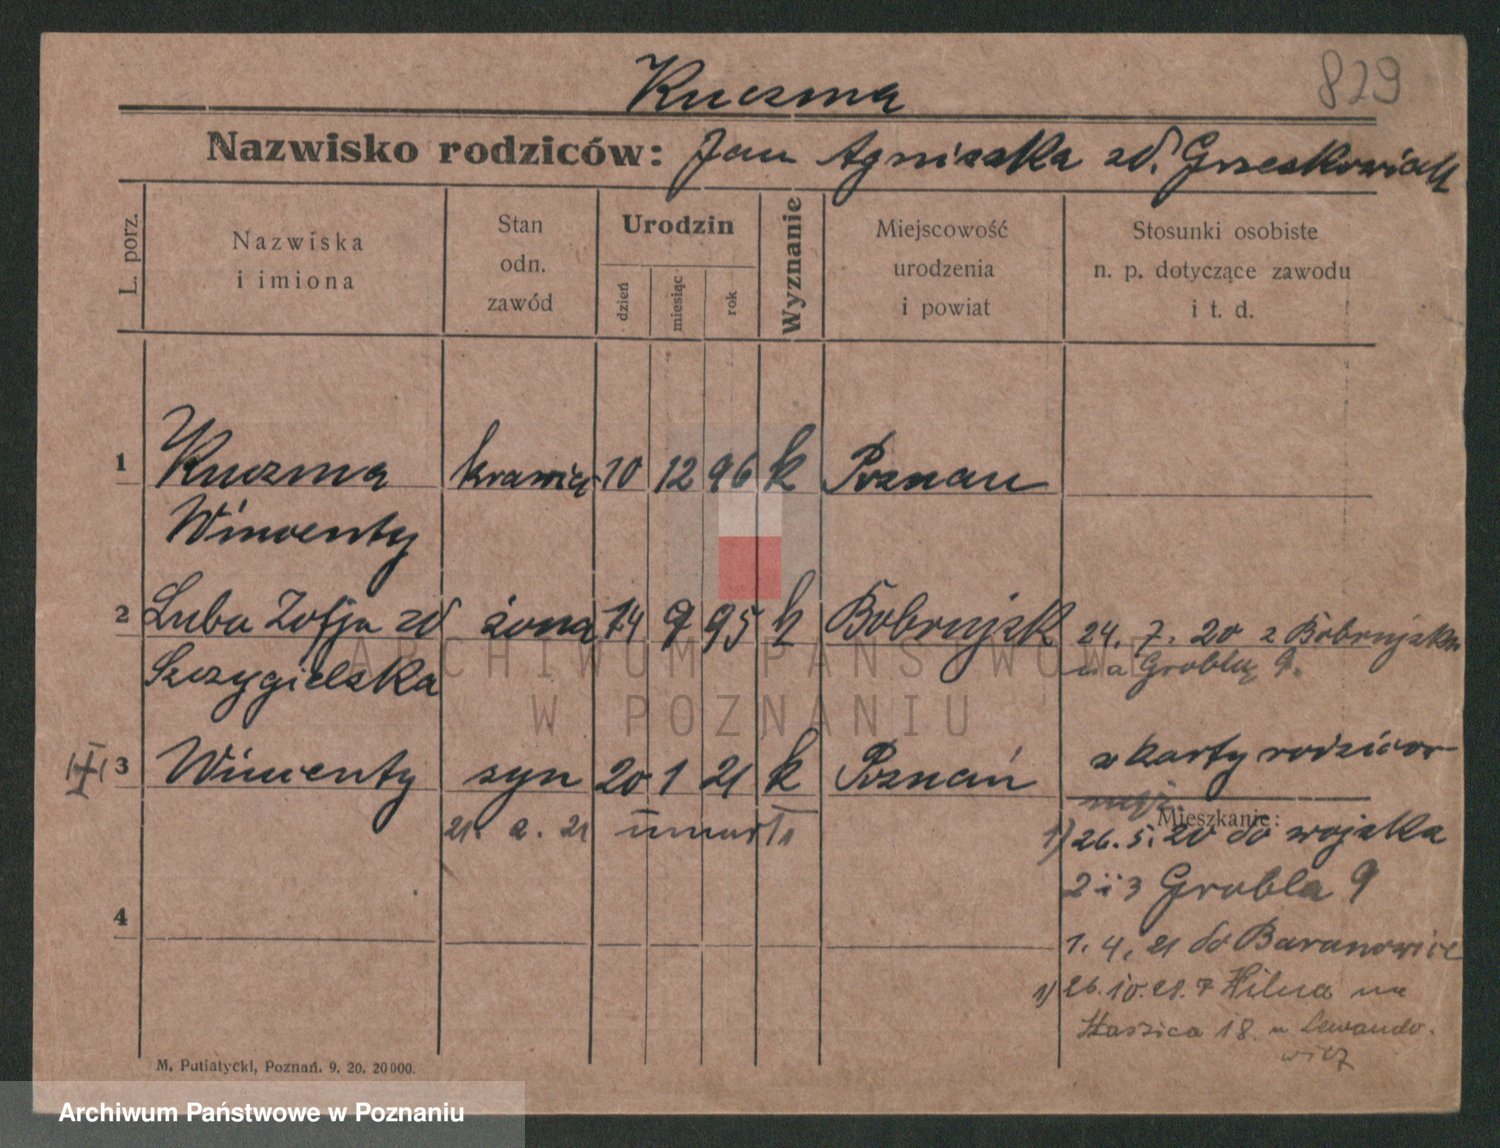 829
Kuczma
Nazwisko rodziców: Jan Agnieszka zd. Grześkowiak
L. porz.
Nazwiska
i imiona
Stan
odn.
zawód
Urodzin
dzień
miesiąc
rok
Wyznanie
Miejscowość
urodzenia
i powiat
Stosunki osobiste
n. p. dotyczące zawodu
i t. d.
1 Kuczma krawiec 10 12 96 k Poznań
Wincenty
2 Luba Zofja zd żona 14 9 95 k Bobrujsk 24. 7. 20 z Bobrujska
Szczygielska na Groblę 9.
3 Wincenty syn 20 1 21 k Poznań z karty rodziców
21. 2. 21 umarł
Mieszkanie:
1) 26. 5. 20 do wojska
2 i 3 Grobla 9
4
1. 4. 21 do Baranowicz
1) 26. 10. 28. z Wilna na
Staszica 18 u Lewando-
wicz
M. Putiatycki, Poznań. 9. 20. 20000.
ARCHIWUM PAŃSTWOWE
W POZNANIU
Archiwum Państwowe w Poznaniu